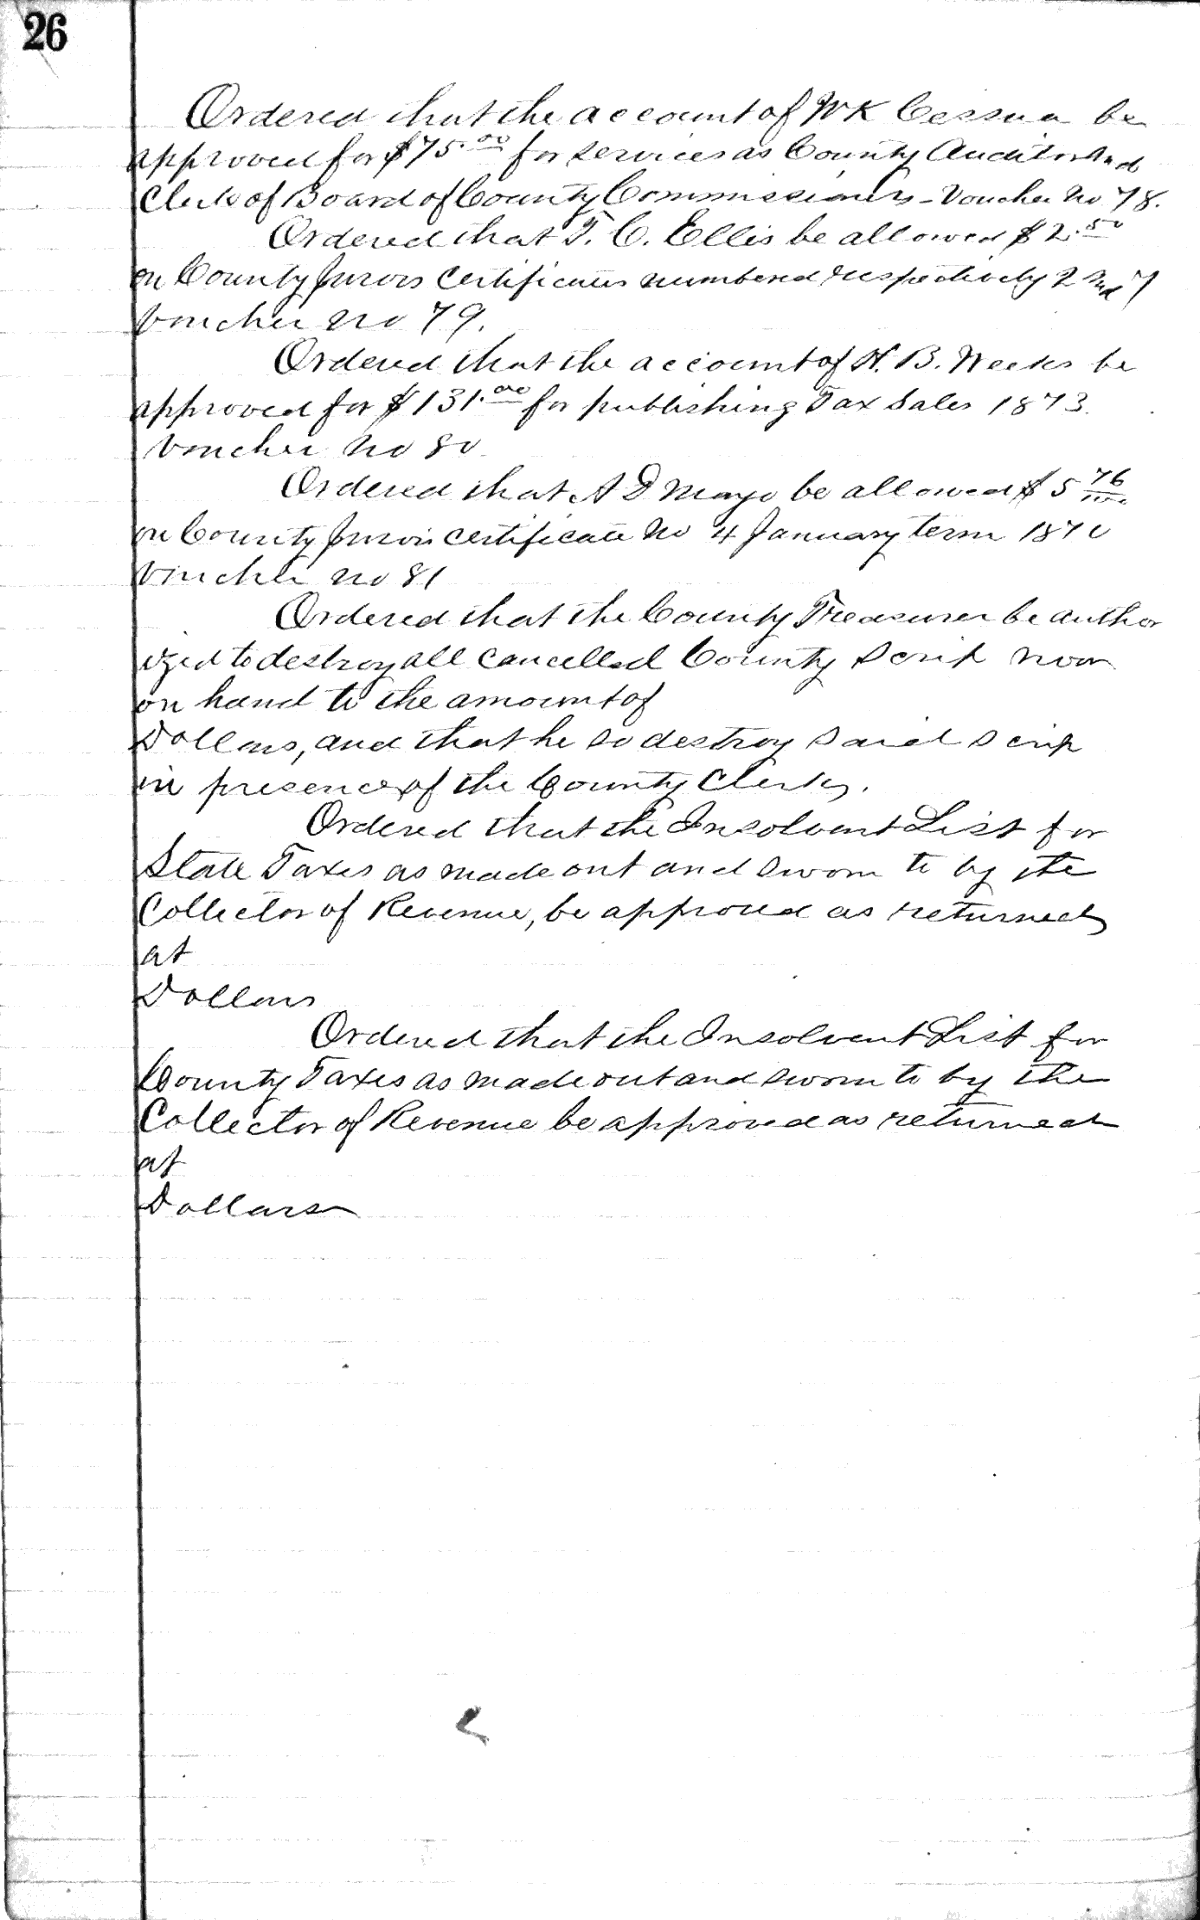 26
Ordered that the account of W K Cessna be
approved for $75.00 for services as County Auditor and
Clerk of Board of County Commissioners - Voucher No 78.
Ordered that T. C. Ellis be allowed $2.50
on County Jurors Certificates numbered respectively 2 and 7
Voucher no 79.
Ordered that the account of H. B. Weeks be
approved for $131.00 for publishing Tax Sales 1873.
Voucher No 80.
Ordered that A D Mayo be allowed $5 76/100
on County Jurors certificate No 4 January term
Voucher no 81
Ordered that the County Treasurer be author
ized to destroy all cancelled County Scrip now
on hand to the amount of
Dollars, and that he so destroy said scrip
in presence of the County Clerk.
Ordered that the Insolvent List for
State Taxes as made out and sworn to by the
Collector of Revenue, be approved as returned
at
Dollars
Ordered that the Insolvent List for
County Taxes as made out and sworn to by the
Collector of Revenue be approved as returned
at
Dollars